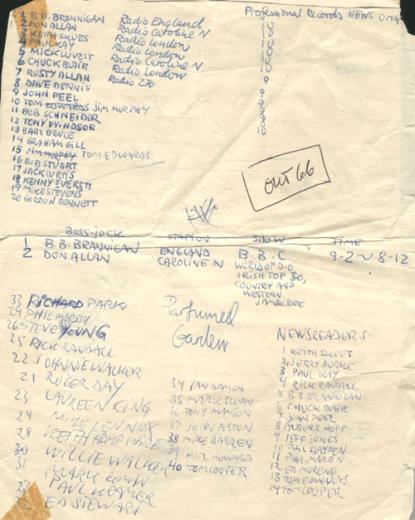 Professional Records NEWS
1 B.B. BRANNIGAN Radio England 10
2 DON ALLAN Radio Caroline N 10
3 KEITH SKUES Radio London 10
4 PAUL KAY Radio London 10
5 MICK LUVZIT Radio Caroline N 10
6 CHUCK BLAIR Radio London 10
7 RUSTY ALLAN Radio 270
8 DAVE DENNIS
9 JOHN PEEL
10 TOM EDWARDS JIM MURPHY
11 BOB SCHNEIDER
12 TONY WINDSOR
13 EARL BRUCE
14 GRAHAM GILL
15 JIM MURPHY TOM EDWARDS
16 BOB STUART
17 JACK CURTIS
18 KENNY EVERETT
19 MIKE STEVENS
20 GORDON BENNETT
OUT 66
BOSS-JOCK STATION SHOW TIME
1 B.B. BRANNIGAN ENGLAND B.B.C. 9-2
2 DON ALLAN CAROLINE N WORLD OF
IRISH TOP 30,
COUNTRY AND
WESTERN
JAMBOREE
8-12
RICHARD PARK
29 PHIL MARTIN
26 STEVE YOUNG
25 RICK RANDALL
22 JOHNNIE WALKER
21 ROGER DAY
23 LAUREEN KING
24 MIKE LENNOX
28 KEITH HAMPSHIRE
30 WILLIE WALKER
31 MARK
PAUL KRAMER
ED STEWART
Perfumed
Garden
34 IAN DAMON
35 MARK SLOAN
36 TONY
37 JOHN ASTON
38 MIKE BARREN
39 MEL HOWARD
40 TOM COOPER
NEWSREADERS
1 KEITH SKUES
2 JERRY BURKE
3 PAUL KAY
4 RICK RANDALL
5 B.B. BRANNIGAN
6 CHUCK BLAIR
7 JOHN PEEL
8
9 JEFF JONES
10 PHIL HAYDEN
11 PHIL MARTIN
12 ED MORENO
13 TOM EDWARDS
14 TOM COOPER